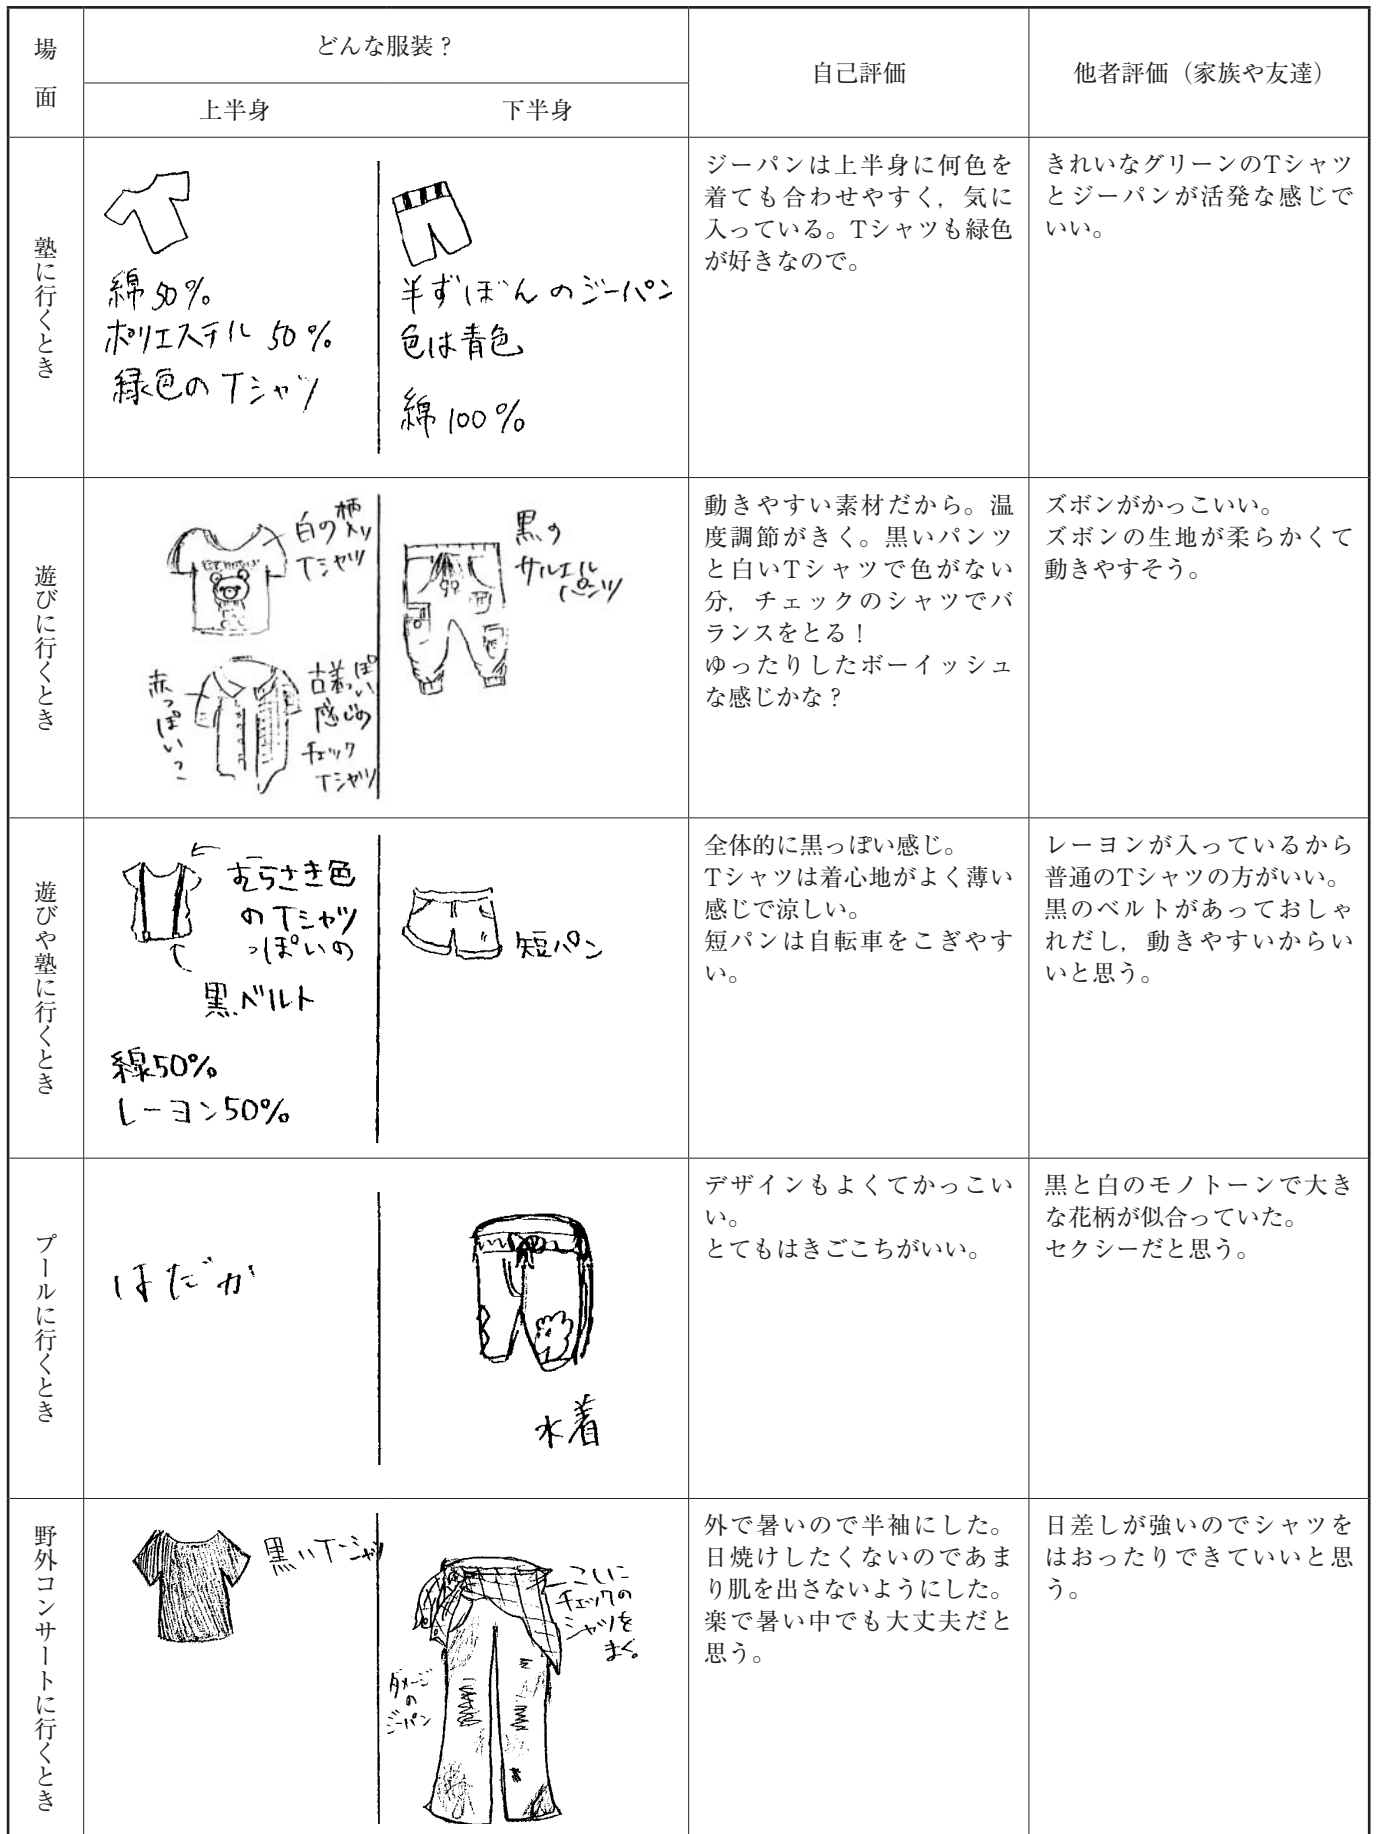 場面
どんな服装？
上半身
下半身
自己評価
他者評価（家族や友達）
塾に行くとき
綿50%
ポリエステル 50%
緑色のTシャツ
半ずぼんのジーパン
色は青色
綿100%
ジーパンは上半身に何色を
着ても合わせやすく，気に
入っている。Tシャツも緑色
が好きなので。
きれいなグリーンのTシャツ
とジーパンが活発な感じで
いい。
遊びに行くとき
白の柄入り
Tシャツ
赤っぽいっ
古着っぽい
感じの
チェック
Tシャツ
黒の
サルエル
パンツ
動きやすい素材だから。温
度調節がきく。黒いパンツ
と白いTシャツで色がない
分，チェックのシャツでバ
ランスをとる！
ゆったりしたボーイッシュ
な感じかな？
ズボンがかっこいい。
ズボンの生地が柔らかくて
動きやすそう。
遊びや塾に行くとき
むらさき色
のTシャツ
っぽいの
黒ベルト
綿50%
レーヨン50%
短パン
全体的に黒っぽい感じ。
Tシャツは着心地がよく薄い
感じで涼しい。
短パンは自転車をこぎやす
い。
レーヨンが入っているから
普通のTシャツの方がいい。
黒のベルトがあっておしゃ
れだし，動きやすいからい
いと思う。
プールに行くとき
はだか
水着
デザインもよくてかっこい
い。
とてもはきごこちがいい。
黒と白のモノトーンで大き
な花柄が似合っていた。
セクシーだと思う。
野外コンサートに行くとき
黒いTシャツ
こしに
チェックの
シャツを
まく。
ダメージ
の
ジーパン
外で暑いので半袖にした。
日焼けしたくないのであま
り肌を出さないようにした。
楽で暑い中でも大丈夫だと
思う。
日差しが強いのでシャツを
はおったりできていいと思
う。